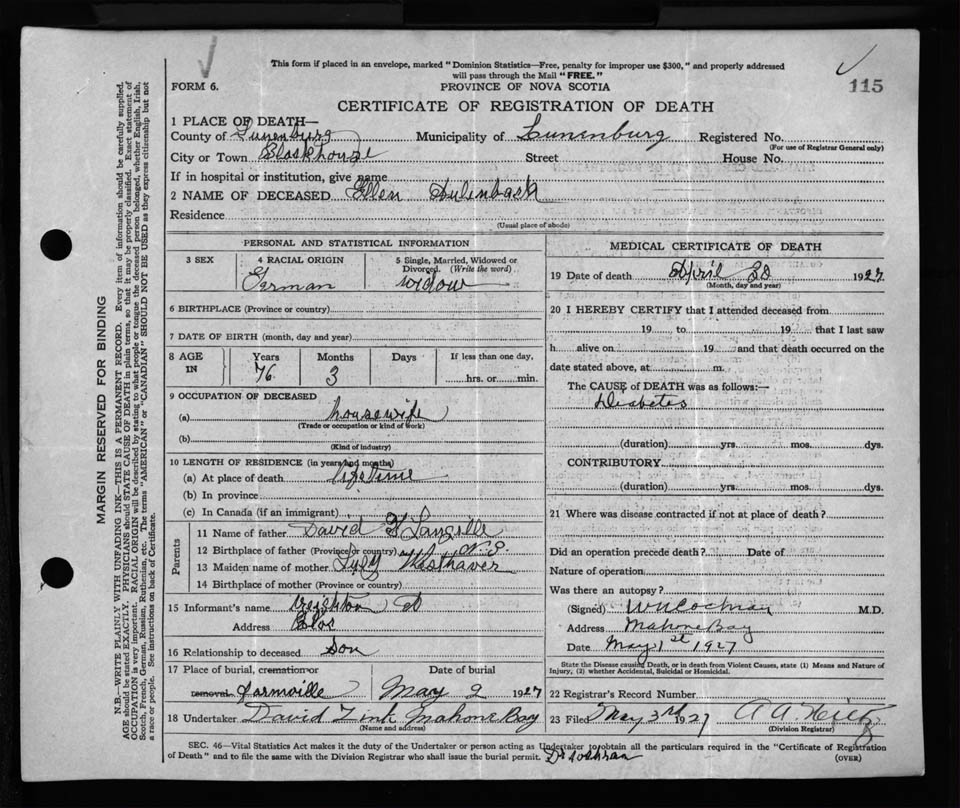 This form if placed in an envelope, marked "Dominion Statistics—Free, penalty for improper use $300," and properly addressed
will pass through the Mail "FREE."
FORM 6.
PROVINCE OF NOVA SCOTIA
115
CERTIFICATE OF REGISTRATION OF DEATH
1 PLACE OF DEATH—
County of Lunenburg Municipality of Lunenburg Registered No.
(For use of Registrar General only)
City or Town Blockhouse Street House No.
If in hospital or institution, give name
2 NAME OF DECEASED Ellen Aulenback
Residence
(Usual place of abode)
PERSONAL AND STATISTICAL INFORMATION
3 SEX 4 RACIAL ORIGIN 5 Single, Married, Widowed or
Divorced. (Write the word)
German widow
6 BIRTHPLACE (Province or country)
7 DATE OF BIRTH (month, day and year)
8 AGE IN Years Months Days If less than one day,
76 3 hrs. or min.
9 OCCUPATION OF DECEASED
(a) housewife
(Trade or occupation or kind of work)
(b)
(Kind of industry)
10 LENGTH OF RESIDENCE (in years and months)
(a) At place of death life time
(b) In province
(c) In Canada (if an immigrant)
Parents
11 Name of father David Langille
12 Birthplace of father (Province or country) N.S.
13 Maiden name of mother Westhaver
14 Birthplace of mother (Province or country)
15 Informant's name Creighton
Address
16 Relationship to deceased Son
17 Place of burial, cremation or Date of burial
removal May 2 1927
18 Undertaker David Zink Mahone Bay
(Name and address)
MEDICAL CERTIFICATE OF DEATH
19 Date of death April 30 1927
(Month, day and year)
20 I HEREBY CERTIFY that I attended deceased from
19 to 19 that I last saw
h alive on 19 and that death occurred on the
date stated above, at m.
The CAUSE of DEATH was as follows:—
Diabetes
(duration) yrs. mos. dys.
CONTRIBUTORY
(duration) yrs. mos. dys.
21 Where was disease contracted if not at place of death?
Did an operation precede death? Date of
Nature of operation
Was there an autopsy?
(Signed) Cochran M.D.
Address Mahone Bay
Date May 1st 1927
State the Disease causing Death, or in death from Violent Causes, state (1) Means and Nature of
Injury, (2) whether Accidental, Suicidal or Homicidal.
22 Registrar's Record Number
23 Filed May 3rd 1927 A A
(Division Registrar)
SEC. 46—Vital Statistics Act makes it the duty of the Undertaker or person acting as Undertaker to obtain all the particulars required in the "Certificate of Registration
of Death" and to file the same with the Division Registrar who shall issue the burial permit. Dr Cochran
(OVER)
MARGIN RESERVED FOR BINDING
N.B.—WRITE PLAINLY WITH UNFADING INK—THIS IS A PERMANENT RECORD. Every item of information should be carefully supplied.
AGE should be stated EXACTLY. PHYSICIANS should STATE CAUSE OF DEATH in plain terms, so that it may be properly classified. Exact statement of
OCCUPATION is very important. RACIAL ORIGIN will be described by stating to what people or tongue the deceased person belonged, whether English, Irish,
Scotch, French, German, Russian, Ruthenian, etc. The terms "AMERICAN" or "CANADIAN" SHOULD NOT BE USED as they express citizenship but not
a race or people. See instructions on back of Certificate.